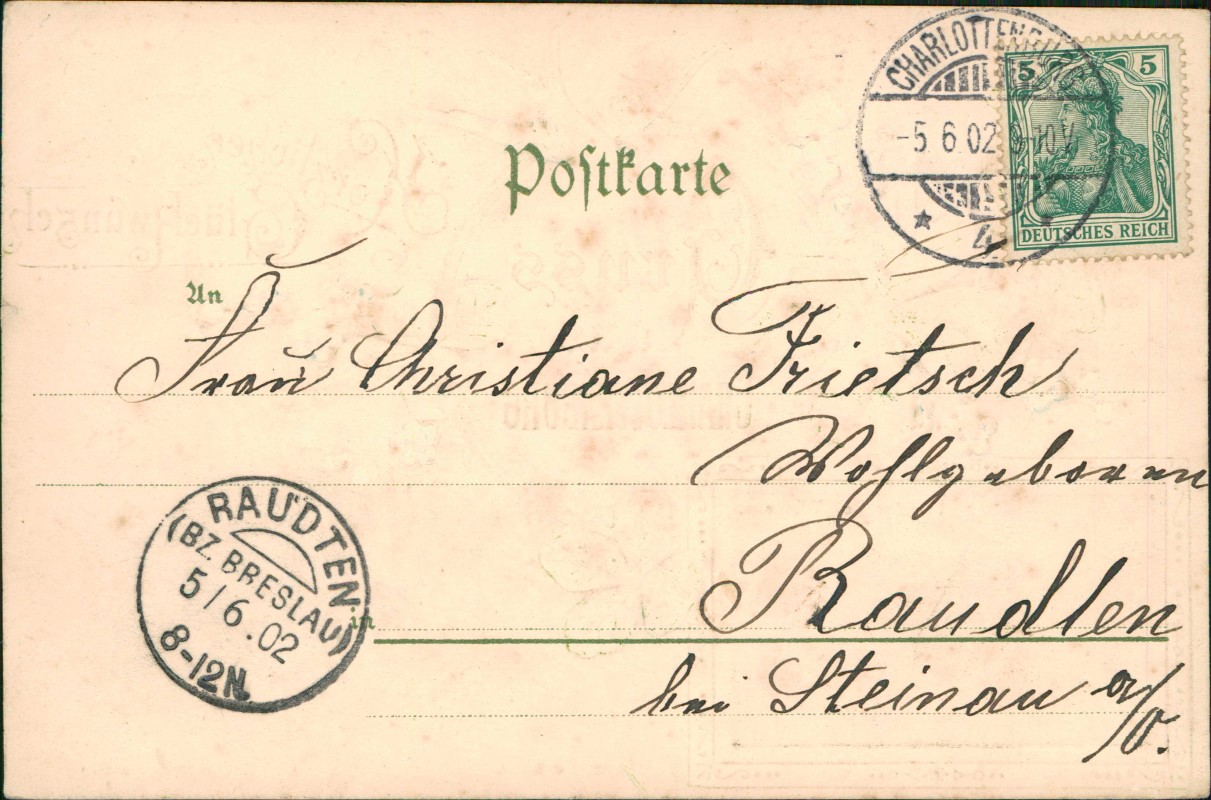 Postkarte
CHARLOTTENBURG
-5.6.02 9-10V
* 4 *
5 5
DEUTSCHES REICH
An
Frau Christiane Frietsch
Wohlgeboren
RAUDTEN
(BZ. BRESLAU)
5/6.02
8-12N.
in
Raudten
bei Steinau a/O.
Glückwunsch
Gruss